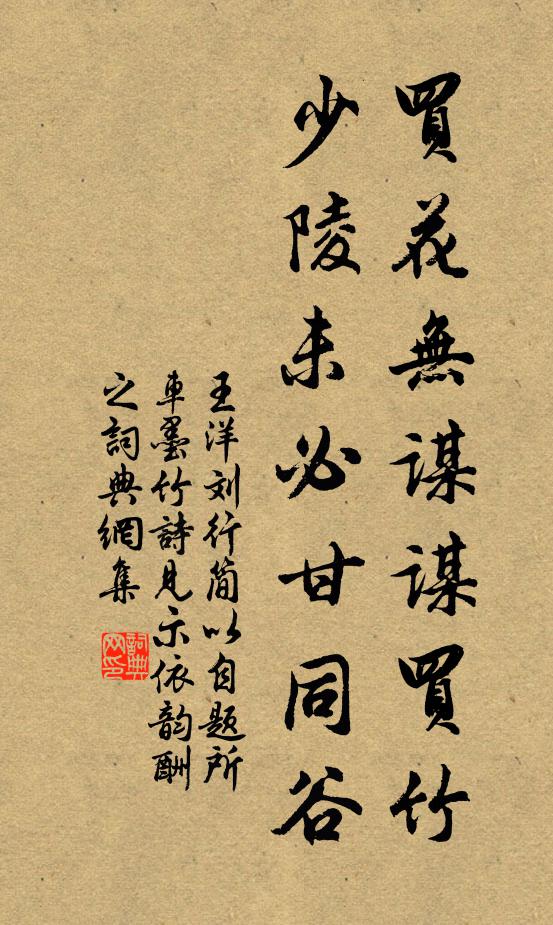 買花無謀謀買竹
少陵未必甘同谷
王洋刘行简以自题所
車墨竹詩見示依韵酬
之詞典網集
詞典网印